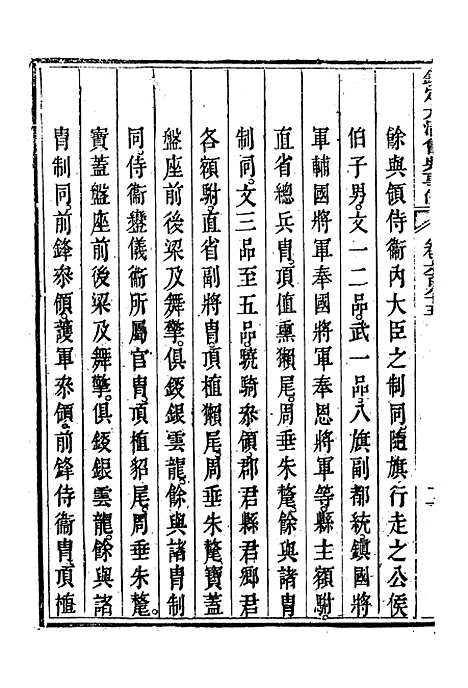 欽定大清會典事例
餘與領侍衞內大臣之制同隨旗行走之公侯
伯子男文一二品武一品八旗副都統鎮國將
軍輔國將軍奉國將軍奉恩將軍等縣主額駙
直省總兵冑頂值熏獺尾周垂朱氂餘與諸冑
制同文三品至五品驍騎參領郡君縣君鄉君
各額駙直省副將冑頂植獺尾周垂朱氂寶蓋
盤座前後梁及舞擎俱鋄銀雲龍餘與諸冑制
同侍衞鑾儀衞所屬官冑頂植貂尾周垂朱氂
寶蓋盤座前後梁及舞擎俱鋄銀雲龍餘與諸
冑制同前鋒參領護軍參領前鋒侍衞冑頂植